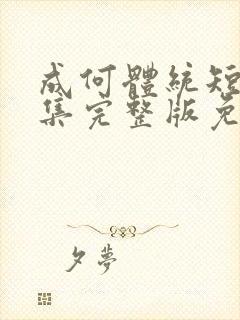 成何體統短
集完整版免
夕夢